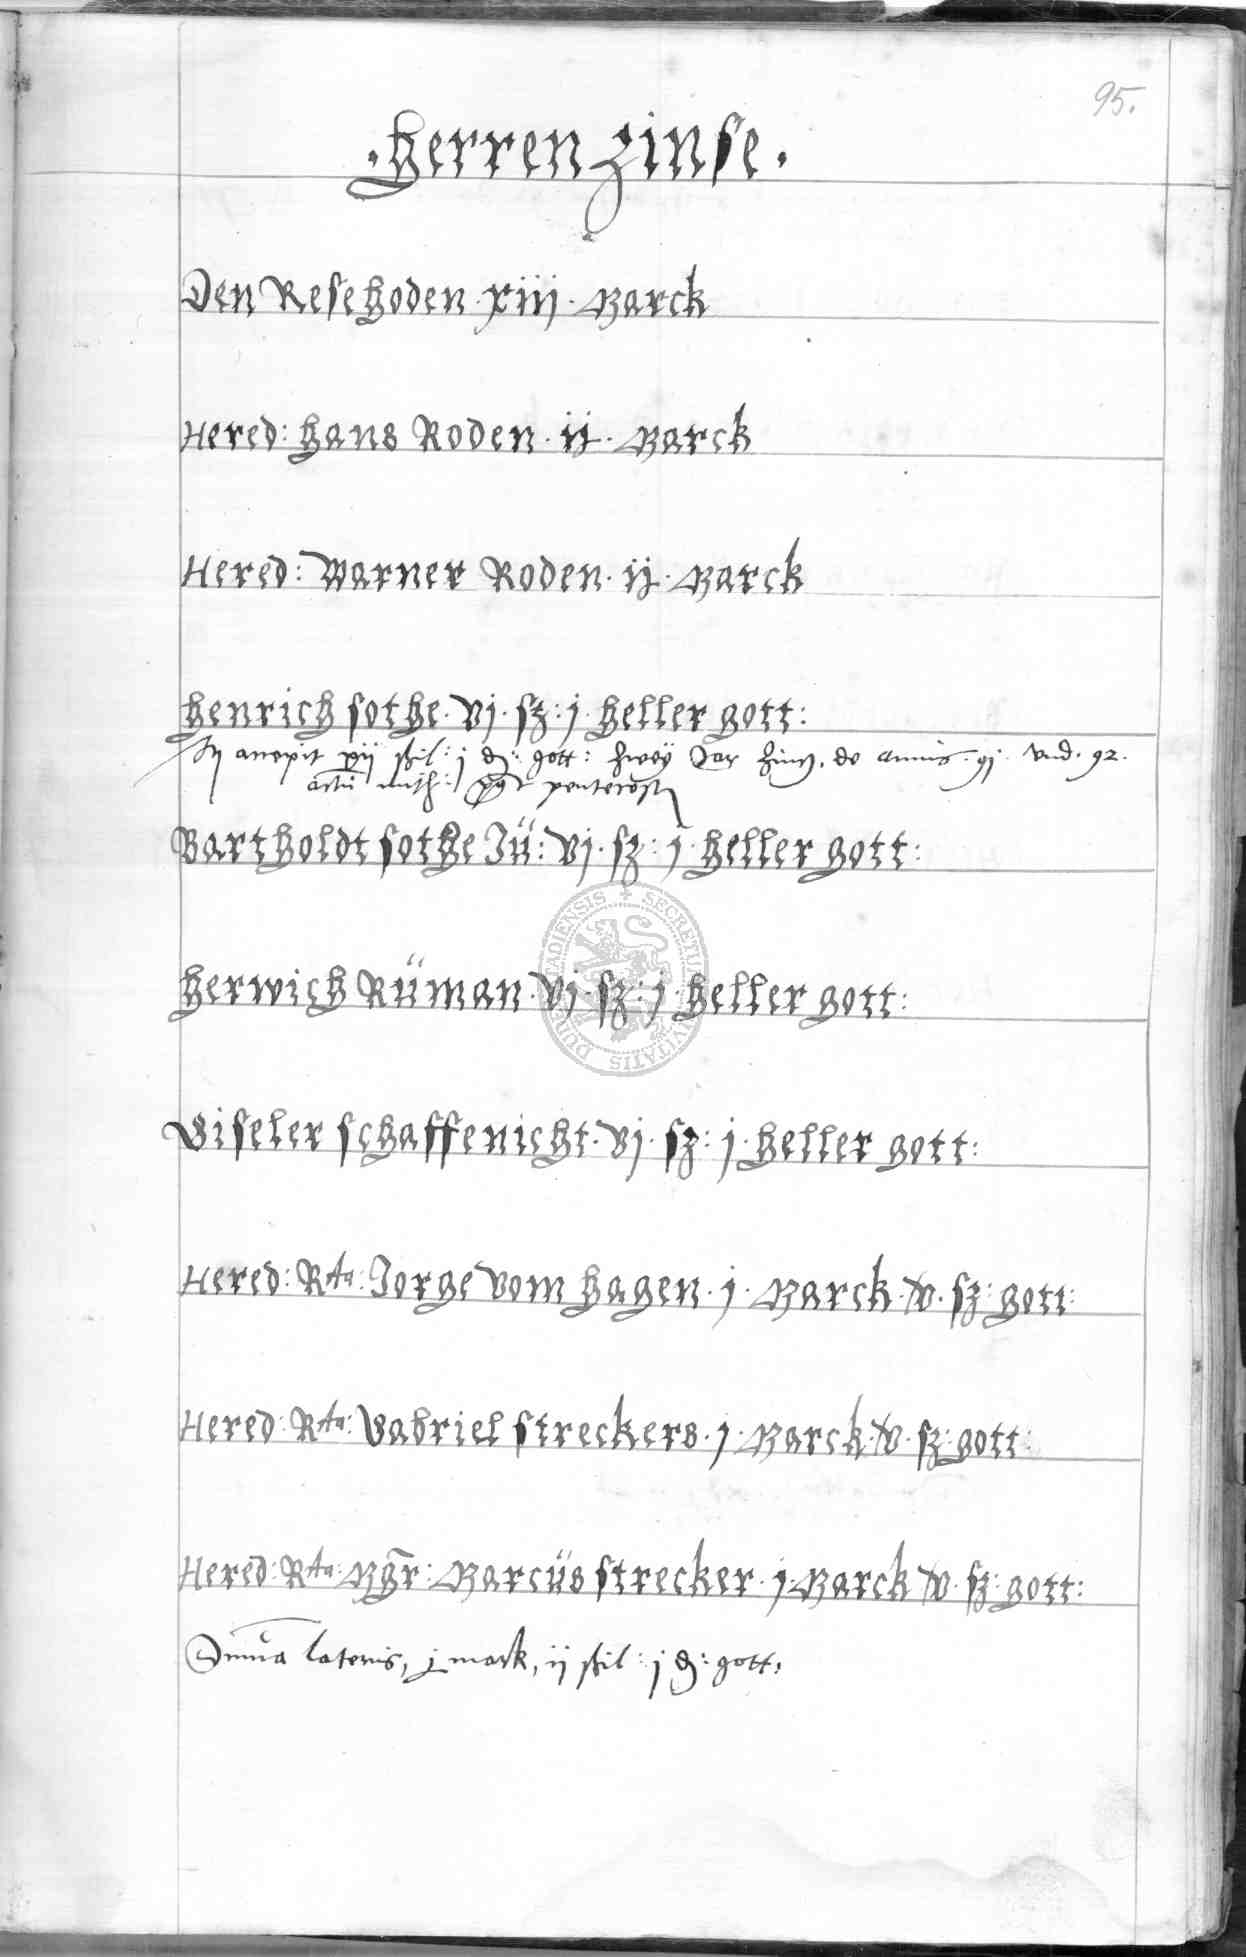 95.
. Herren Zinse .
Den Resehoden . xiij . Marck
Hered: Hans Roden . ij . Marck
Hered: Warner Roden . ij . Marck
Henrich Sothe . vj . sz : j . Heller gott :
accepit xij ßil : j d : gott : zwey Jar zinß , de annis . 91 . vnd . 92 .
actu mith : penteco
Bartholdt Sothe Jü : vj . sz : j . Heller gott :
Herwich Rüman . vj . sz : j . Heller gott :
Giseler Schaffenicht . vj . sz : j . Heller gott :
Hered : Rta : Jorge vom Hagen . j . Marck . v . sz : gott :
Hered : Rta : Gabriel Streckers . j . Marck . v . sz : gott :
Hered : Rta : Mgr : Marcüs Strecker . j . Marck v . sz : gott :
Suma lateris , j mark , ij ßil : j d : gott ,
SECRETU CIVITATIS DURE TADIENSIS